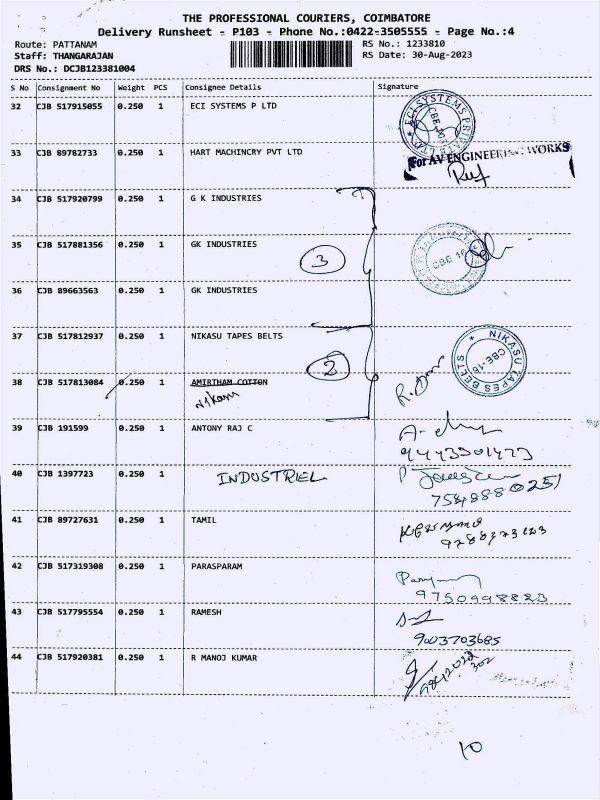 THE PROFESSIONAL COURIERS, COIMBATORE
Delivery Runsheet - P103 - Phone No.:0422-3505555 - Page No.:4
Route: PATTANAM
RS No.: 1233810
Staff: THANGARAJAN
RS Date: 30-Aug-2023
DRS No.: DCJB123381004
S No Consignment No Weight PCS Consignee Details Signature
32 CJB 517915055 0.250 1 ECI SYSTEMS P LTD
ECI SYSTEMS PRIVATE LTD
33 CJB 89782733 0.250 1 HART MACHINCRY PVT LTD
For AV ENGINEERING WORKS
34 CJB 517920799 0.250 1 G K INDUSTRIES
35 CJB 517881356 0.250 1 GK INDUSTRIES
3
CBE 16
36 CJB 89663563 0.250 1 GK INDUSTRIES
37 CJB 517812937 0.250 1 NIKASU TAPES BELTS
2
NIKASU TAPES BELTS
CBE-16
38 CJB 517813084 0.250 1 AMIRTHAM COTTON
39 CJB 191599 0.250 1 ANTONY RAJ C
9443301473
40 CJB 1397723 0.250 1 INDUSTRIEL
41 CJB 89727631 0.250 1 TAMIL
42 CJB 517319308 0.250 1 PARASPARAM
9750998823
43 CJB 517795554 0.250 1 RAMESH
9003703685
44 CJB 517920381 0.250 1 R MANOJ KUMAR
10